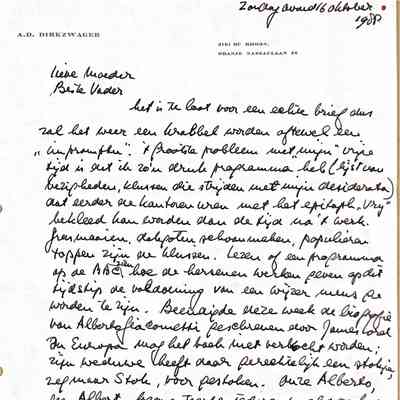 Zondagavond 16 oktober
1988
A.D. DIRKZWAGER
3161 HC RHOON,
ORANJE NASSAULAAN 29
Lieve Moeder
Beste Vader
het is te laat voor een echte brief dus
zal het weer een krabbel worden oftewel een
„impromptu". 't grootste probleem met „mijn" vrije
tijd is dat ik zo'n druk programma heb (lijst van
bezigheden, klussen die strijden met mijn desiderata)
dat eerder de kantooruren met het epitaph „Vrij"
bekleed kan worden dan de tijd na 't werk.
Grasmaaien, dakgoten schoonmaken, populieren
toppen zijn de klussen. Lezen of een programma
op de BBC zien hoe de hersenen werken geven op dit
tijdstip de voldoening van een wijzer mens ge
worden te zijn. Beeindigde deze week de biografie
van Alberto Giacometti geschreven door James Lord
In Europa mag het boek niet verkocht worden;
zijn weduwe heeft daar gerechtelijk een stokje,
zeg maar Stok, voor gestoken. Onze Alberto,